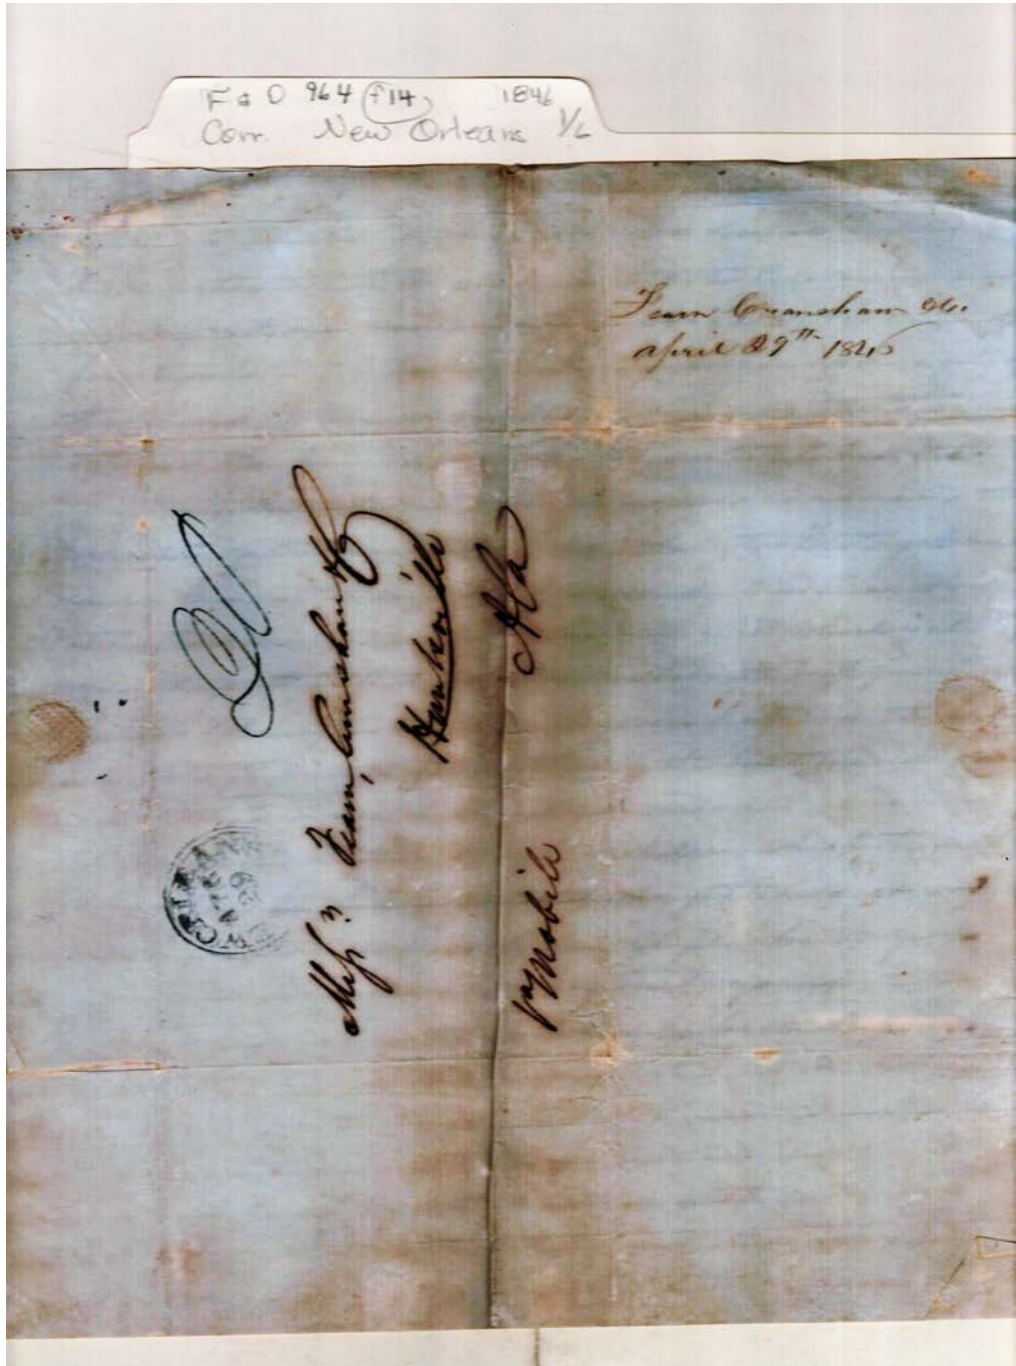 F & D 964 f14 1846
Corr. New Orleans 1/6
Fearn Crenshaw &Co.
april 29th 1846
Mess rs Fearn, Crenshaw &Co
Huntsville
Ala
pr Mobile